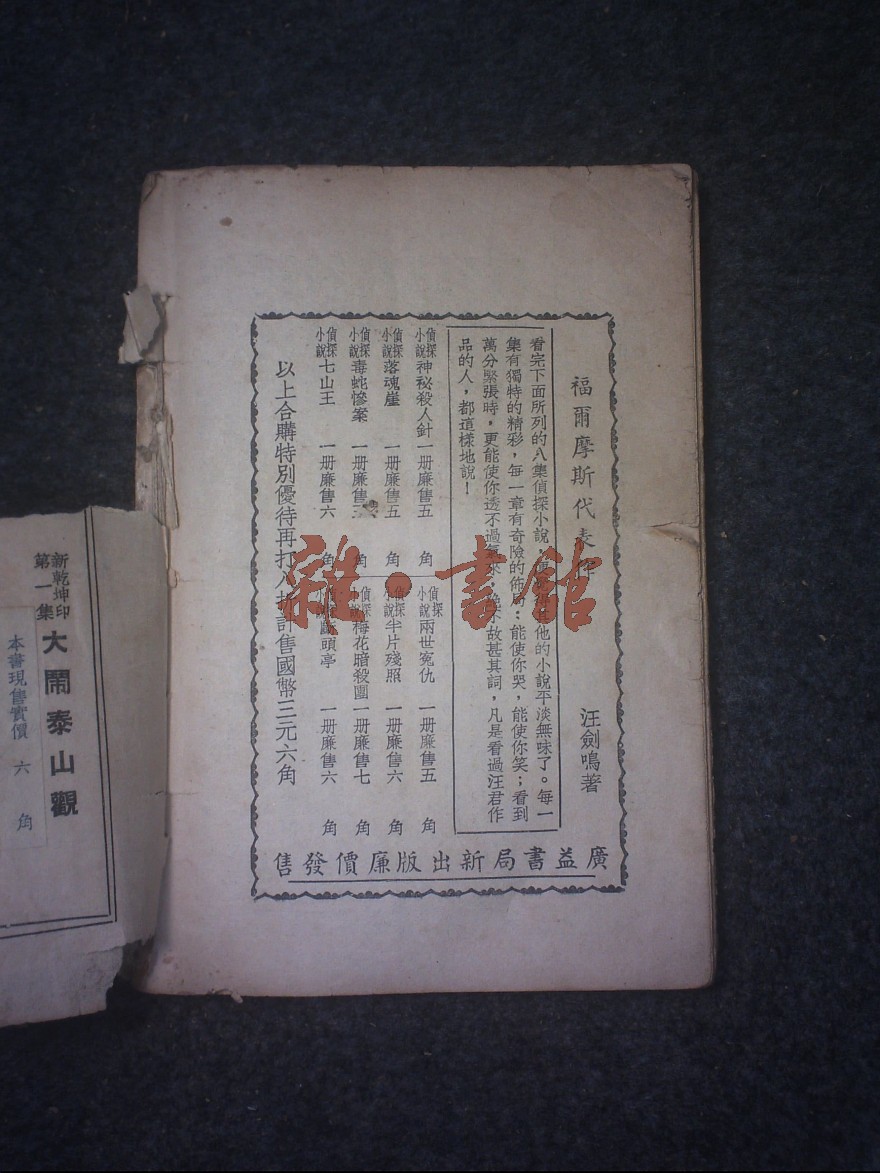 福爾摩斯代表作　汪劍鳴著
看完下面所列的八集偵探小說，
他的小說平淡無味了。每一
集有獨特的精彩，每一章有奇險的佈局：能使你哭，能使你笑；看到
萬分緊張時，更能使你透不過氣來，
不故甚其詞，凡是看過汪君作
品的人，都這樣地說！
偵探小說 神秘殺人針 一册廉售五角
偵探小說 兩世寃仇 一册廉售五角
偵探小說 落魂崖 一册廉售五角
偵探小說 半片殘照 一册廉售六角
偵探小說 毒蛇慘案 一册廉售 角
偵探小說 梅花暗殺團 一册廉售七角
偵探小說 七山王 一册廉售六角
偵探小說 斷頭亭 一册廉售六角
以上合購特別優待再打八折計售國幣三元六角
廣益書局新出版廉價發售
新乾坤印
第一集
大鬧泰山觀
本書現售實價 六角
雜·書館